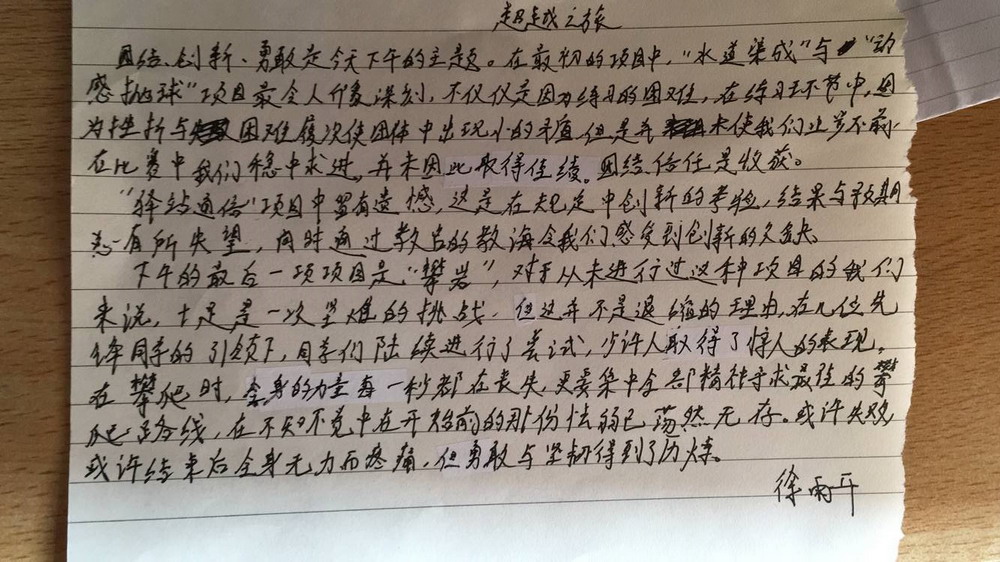 超越之旅
团结、创新、勇敢是今天下午的主题。在最初的项目中,“水道渠成”与“动
感抛球”项目最令人印象深刻,不仅仅是因为练习的困难,在练习环节中,因
为挫折与困难屡次使团体中出现小的矛盾,但是并未使我们止步不前
在比赛中我们稳中求进,并未因此取得佳绩。团结信任是收获。
“驿站通信”项目中留有遗憾,这是在规定中创新的考验,结果与预期
有所失望,同时通过教官的教诲令我们感受到创新的欠缺。
下午的最后一项项目是“攀岩”,对于从未进行过这种项目的我们
来说,十足是一次坚难的挑战。但这并不是退缩的理由,在几位先
锋同学的引领下,同学们陆续进行了尝试,少许人取得了惊人的表现。
在攀爬时,全身的力量每一秒都在丧失,更要集中全部精神寻求最佳的攀
爬路线,在不知不觉中在开始前的那份怯弱已荡然无存。或许失败
或许结束后全身无力而疼痛,但勇敢与坚韧得到了历炼。
徐雨